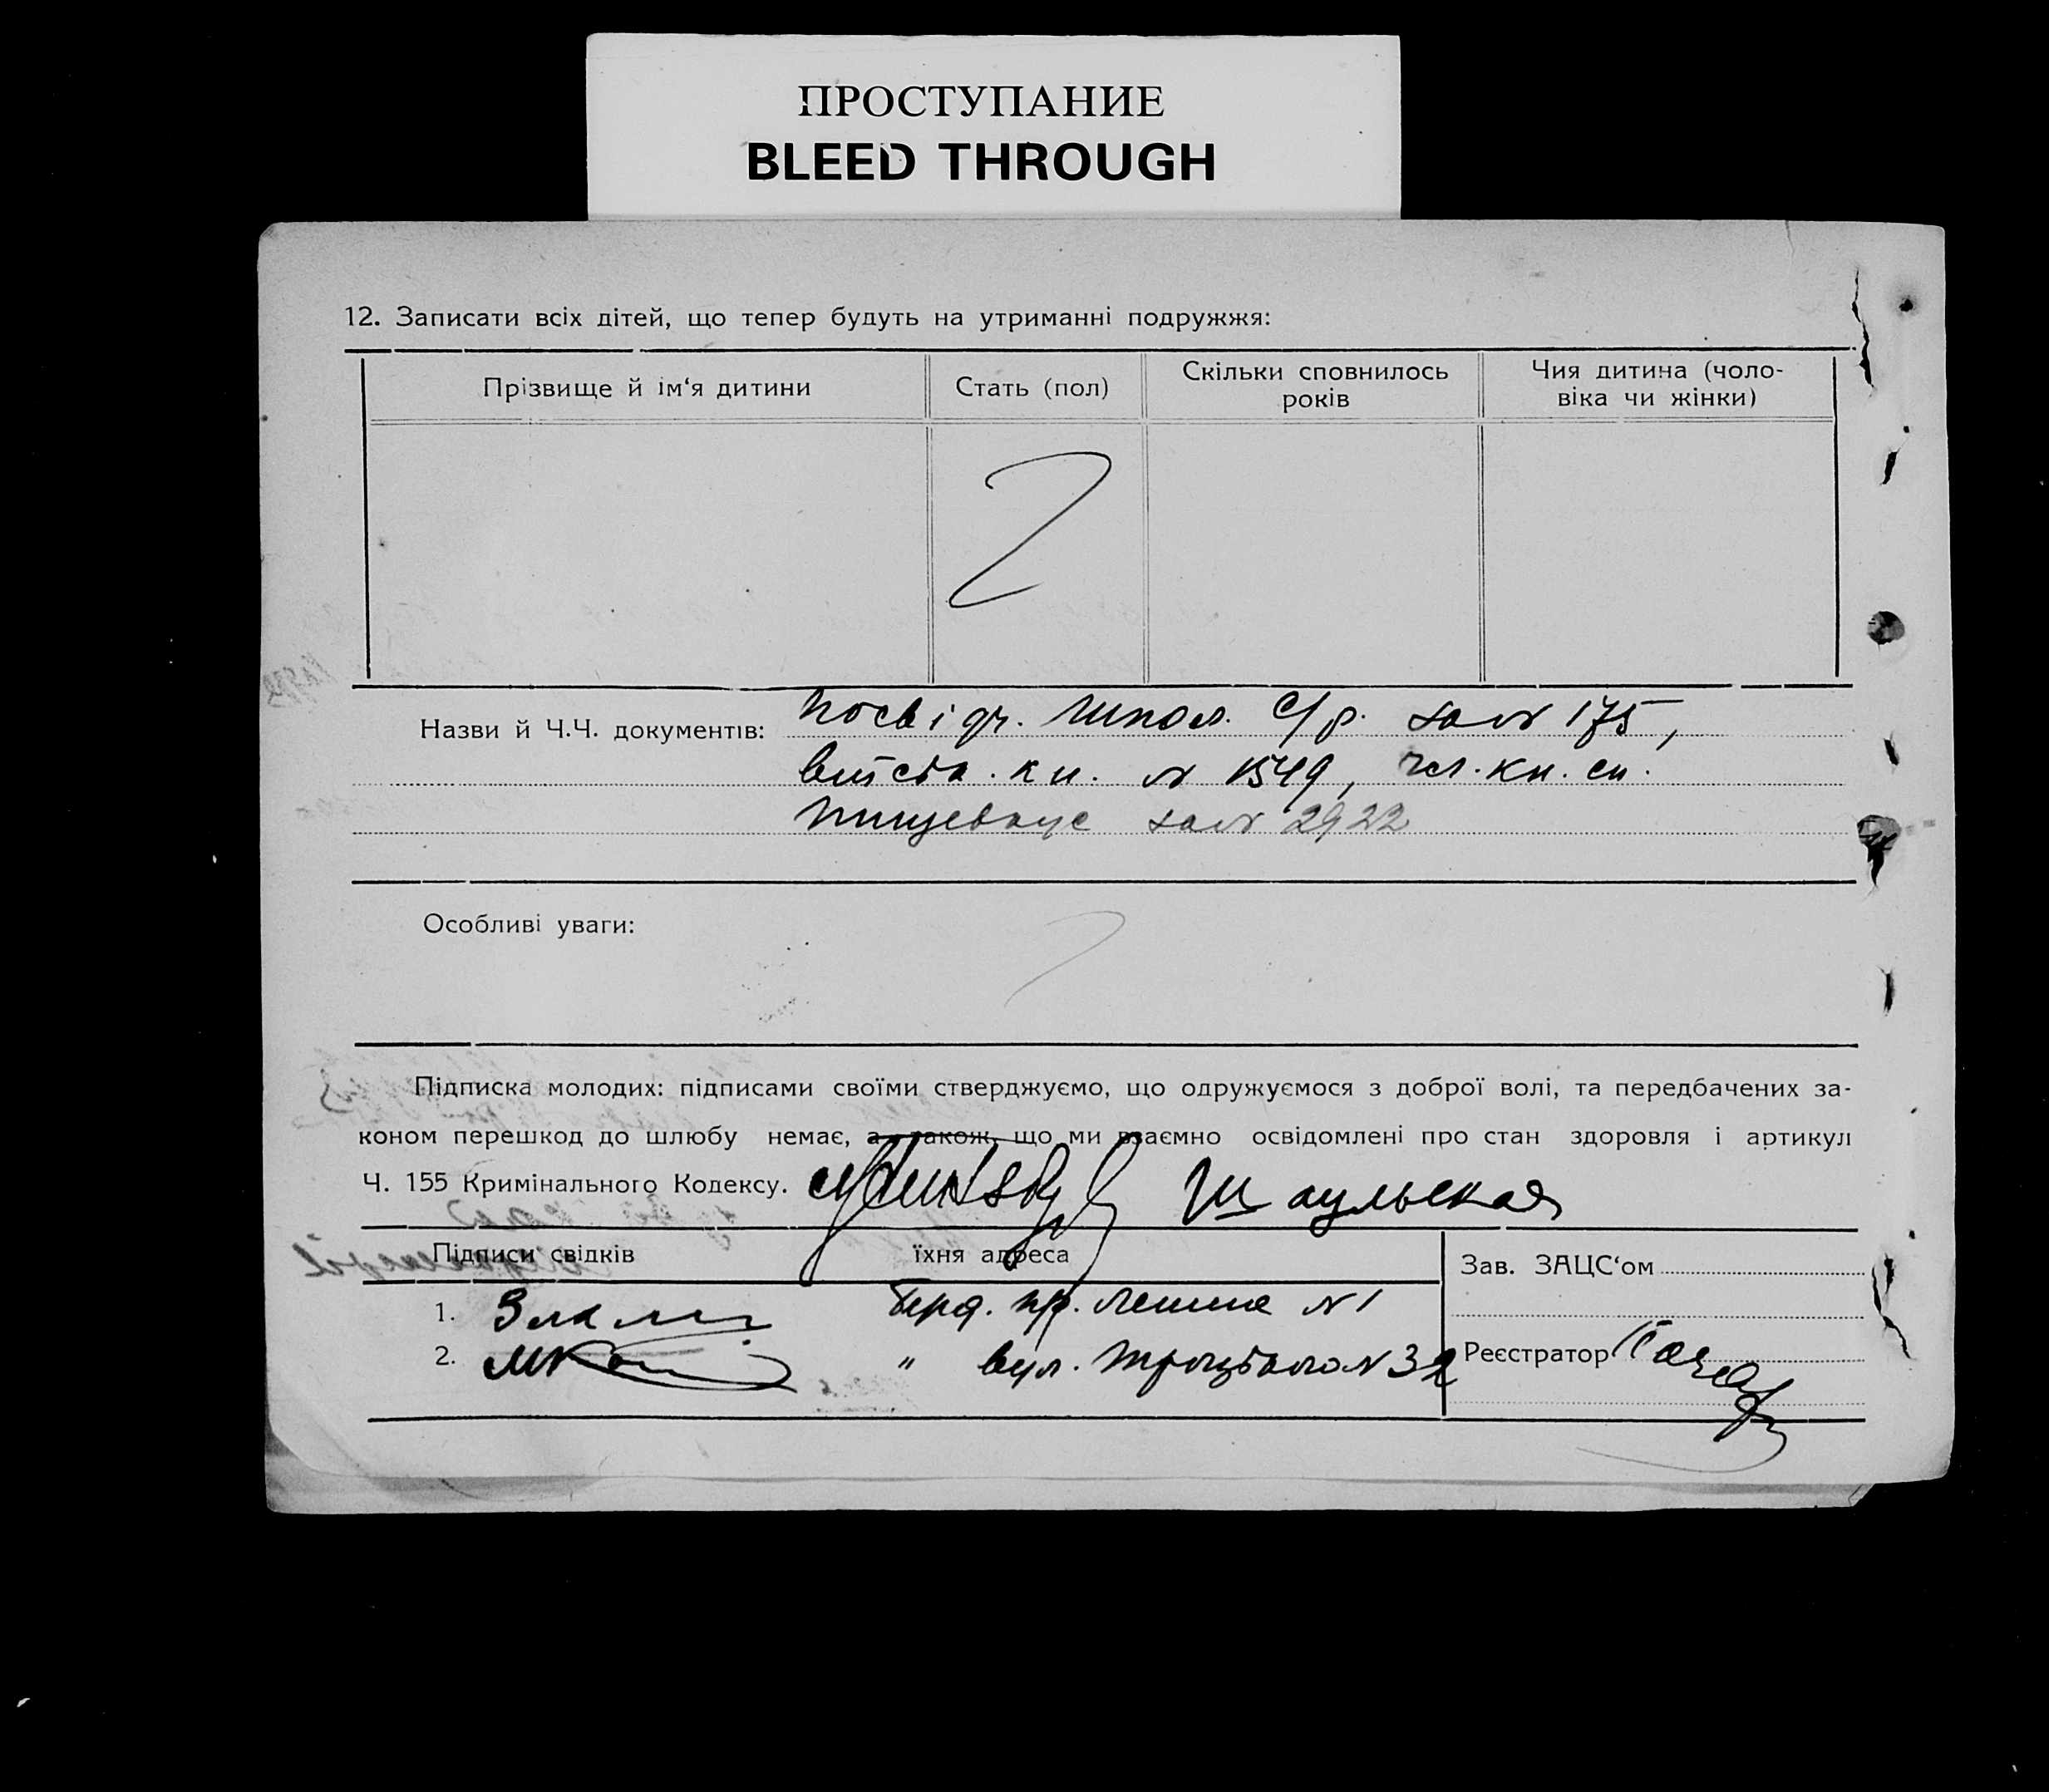 ПРОСТУПАНИЕ
BLEED THROUGH
12. Записати всіх дітей, що тепер будуть на утриманні подружжя:
Прізвище й ім‘я дитини
Стать (пол)
Скільки сповнилось
років
Чия дитина (чоло-
віка чи жінки)
Назви й Ч.Ч. документів: посвідч. с/р. за № 175,
кн. № 1549, чл. кн. сп.
за № 2922
Особливі уваги:
Підписка молодих: підписами своїми стверджуємо, що одружуємося з доброї волі, та передбачених за-
коном перешкод до шлюбу немає, а також, що ми взаємно освідомлені про стан здоровля і артикул
Ч. 155 Кримінального Кодексу. Шаульская
Підписи свідків їхня адреса
Зав. ЗАЦС‘ом
1. пр. Леніна № 1
2. " вул. Троцького № 32
Реєстратор